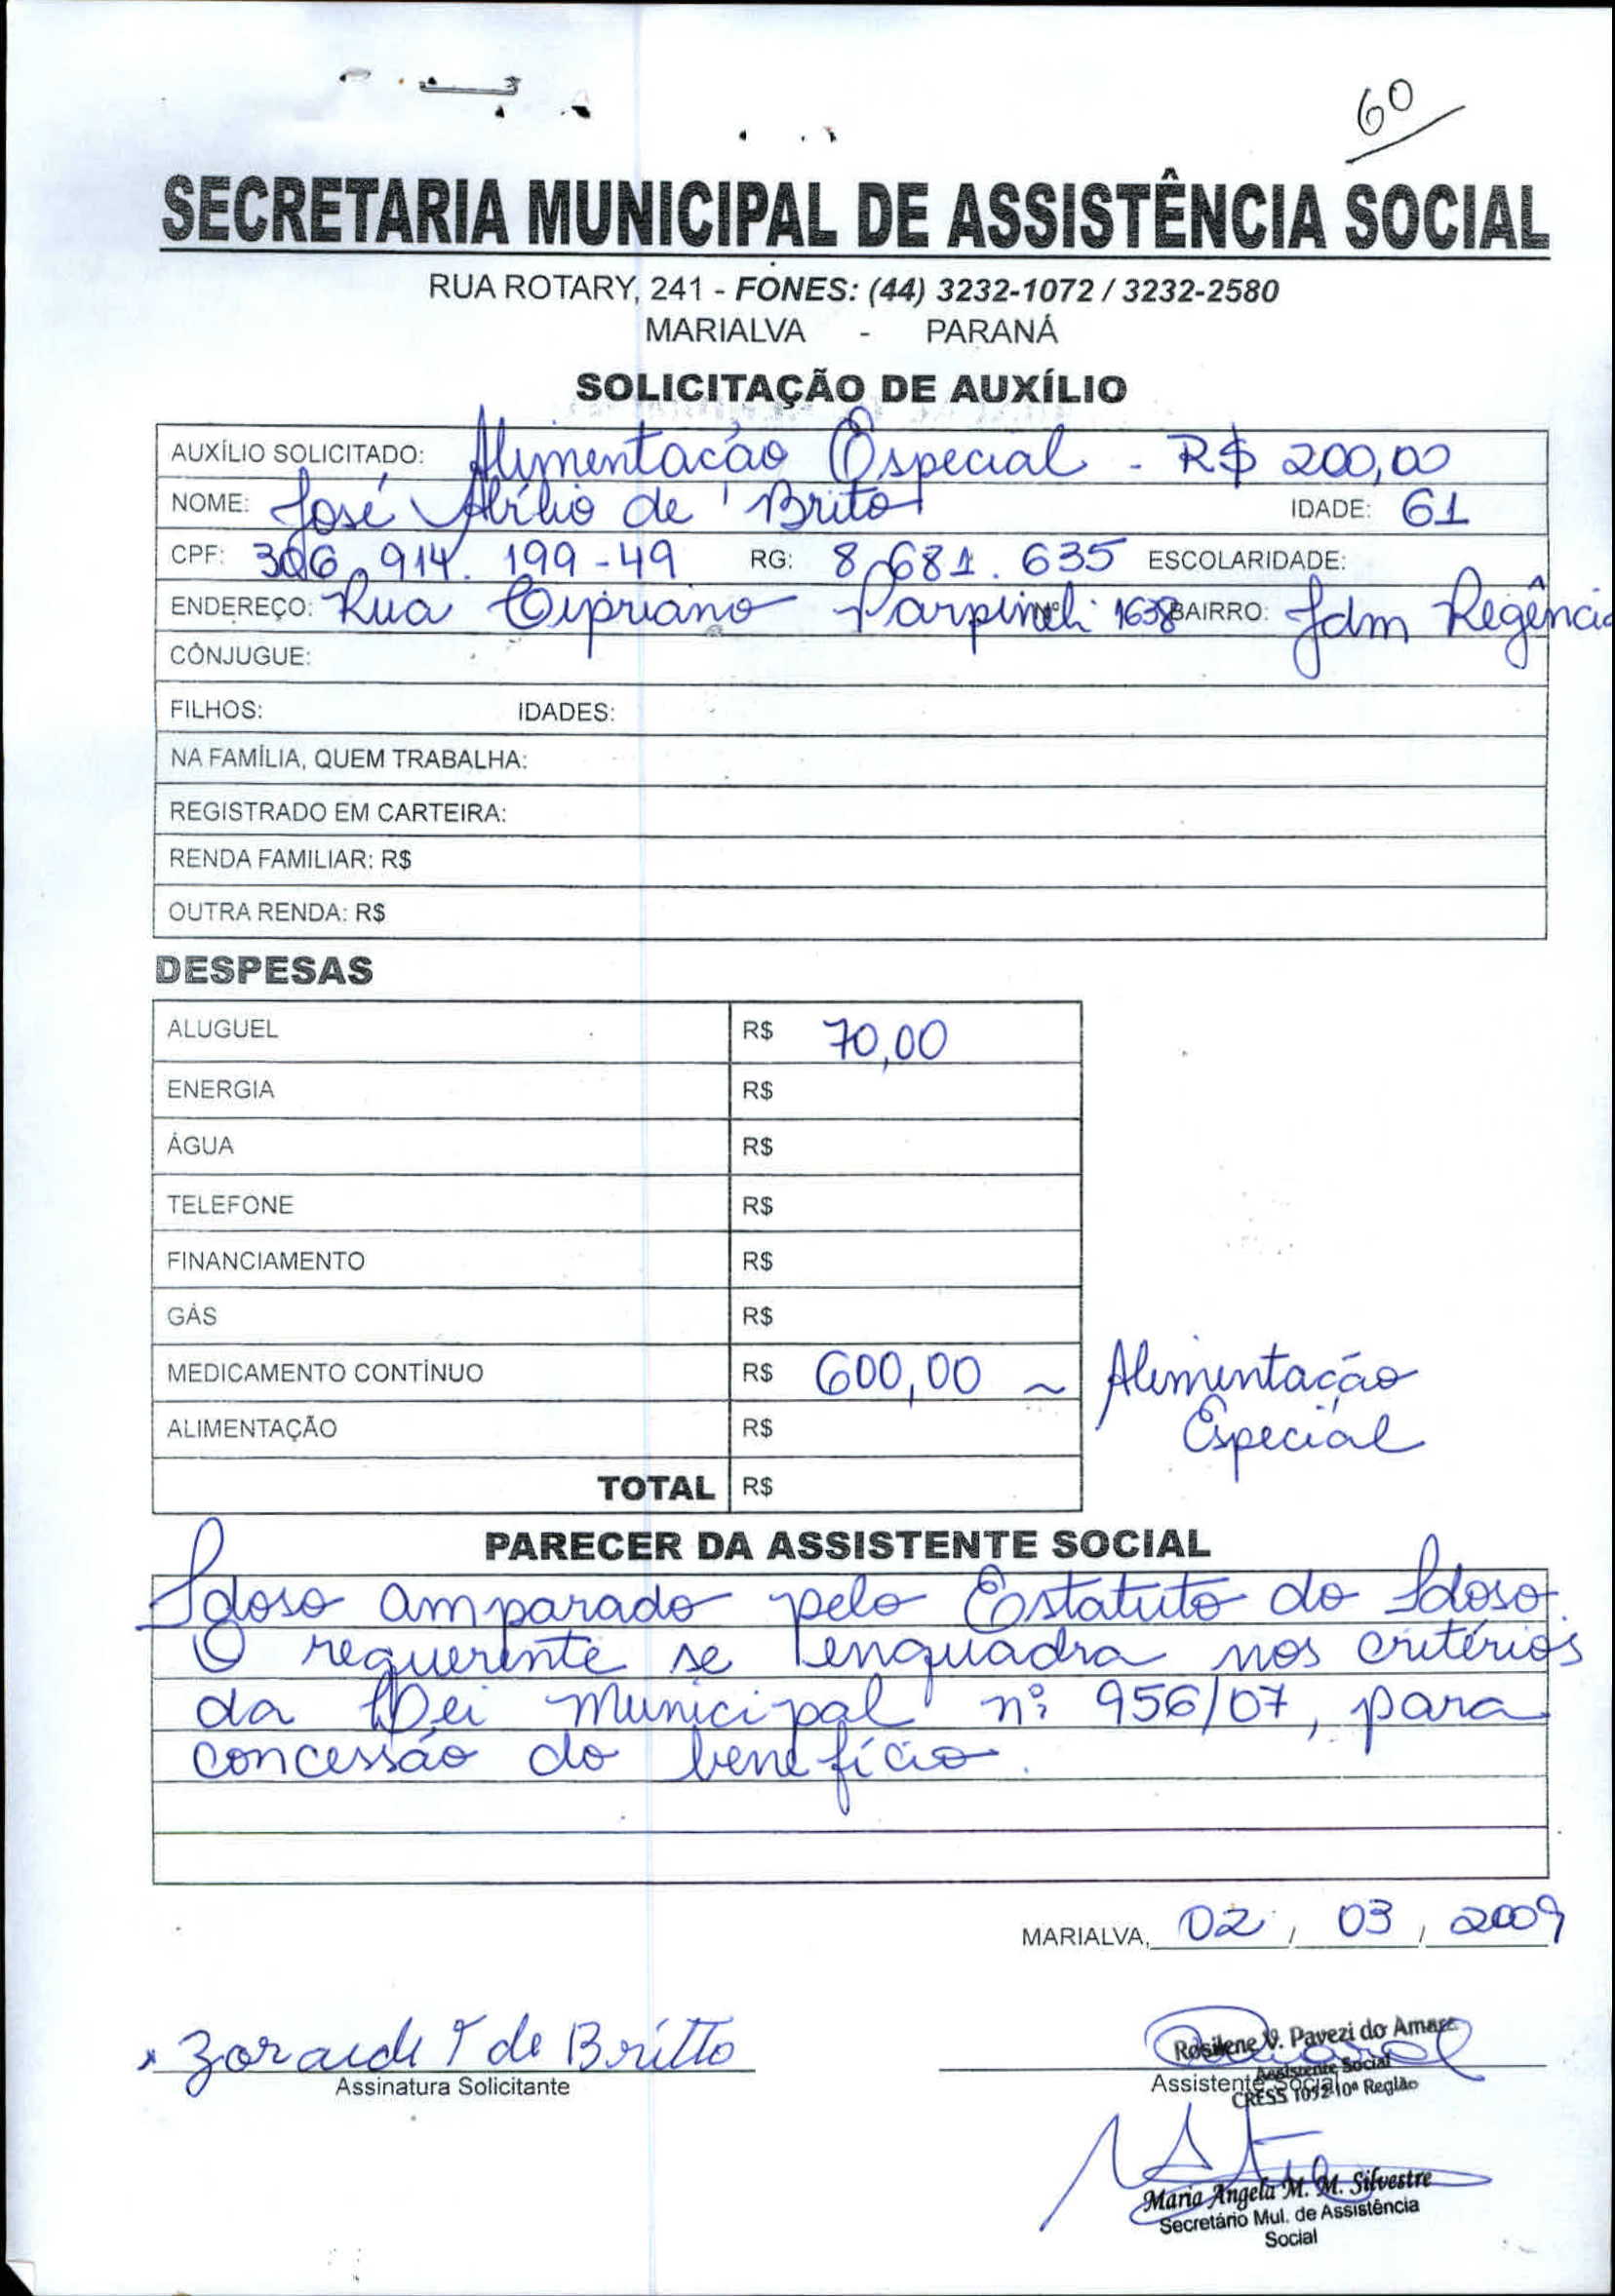 60
SECRETARIA MUNICIPAL DE ASSISTÊNCIA SOCIAL
RUA ROTARY, 241 - FONES: (44) 3232-1072 / 3232-2580
MARIALVA - PARANÁ
SOLICITAÇÃO DE AUXÍLIO
AUXÍLIO SOLICITADO: Alimentacão Especial - R$ 200,00
NOME: José Abílio de Brito IDADE: 61
CPF: 306.914.199-49 RG: 8.681.635 ESCOLARIDADE:
ENDEREÇO: Rua Cipriano Parpineli Nº 1638 BAIRRO: Jdm Regência
CÔNJUGUE:
FILHOS: IDADES:
NA FAMÍLIA, QUEM TRABALHA:
REGISTRADO EM CARTEIRA:
RENDA FAMILIAR: R$
OUTRA RENDA: R$
DESPESAS
ALUGUEL R$ 70,00
ENERGIA R$
ÁGUA R$
TELEFONE R$
FINANCIAMENTO R$
GÁS R$
MEDICAMENTO CONTÍNUO R$ 600,00 ~ Alimentação
Especial
ALIMENTAÇÃO R$
TOTAL R$
PARECER DA ASSISTENTE SOCIAL
Idoso amparado pelo Estatuto do Idoso.
O requerente se enquadra nos critérios
da Lei Municipal nº 956/07, para
concessão do benefício.
MARIALVA, 02 / 03 / 2009
x Zoraide T de Britto
Assinatura Solicitante
Rosilene V. Pavezi do Amaral
Assistente Social
Assistente Social
CRESS 1092-10ª Região
Maria Angela M. M. Silvestre
Secretário Mul. de Assistência
Social